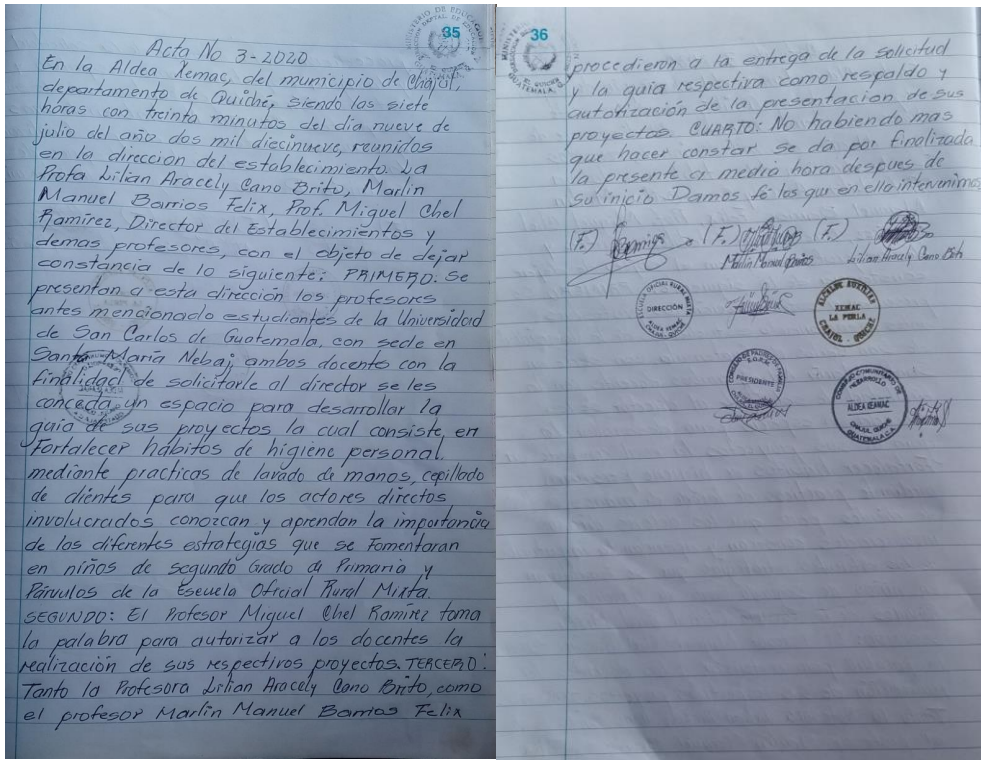 35
Acta No 3-2020
En la Aldea Xemac, del municipio de Chajul,
departamento de Quiché, siendo las siete
horas con treinta minutos del día nueve de
julio del año dos mil diecinueve, reunidos
en la direccion del establecimiento. La
Profa Lilian Aracely Cano Brito, Marlin
Manuel Barrios Felix, Prof. Miguel Chel
Ramírez, Director del Establecimientos y
demas profesores, con el objeto de dejar
constancia de lo siguiente: PRIMERO: Se
presentan a esta dirección los profesores
antes mencionado estudiantes de la Universidad
de San Carlos de Guatemala, con sede en
Santa María Nebaj, ambos docentes con la
finalidad de solicitarle al director se les
conceda un espacio para desarrollar la
guia de sus proyectos la cual consiste, en
Fortalecer hábitos de higiene personal
mediante practicas de lavado de manos, cepillado
de dientes para que los actores directos
involucrados conozcan y aprendan la importancia
de las diferentes estrategias que se Fomentaran
en niños de segundo Grado de Primaria y
Párvulos de la Escuela Oficial Rural Mixta
SEGUNDO: El Profesor Miguel Chel Ramírez toma
la palabra para autorizar a los docentes la
realización de sus respectivos proyectos. TERCERO:
Tanto la Profesora Lilian Aracely Cano Brito, como
el profesor Marlin Manuel Barrios Felix
36
procedieron a la entrega de la solicitud
y la guia respectiva como respaldo y
autorización de la presentacion de sus
proyectos. CUARTO: No habiendo mas
que hacer constar se da por finalizada
la presente a media hora despues de
su inicio Damos fé los que en ella intervenimos
(F.) (F.) (F.)
Marlin Manuel Barrios Lilian Aracely Cano Brito
ESCUELA OFICIAL RURAL MIXTA
DIRECCIÓN
ALDEA XEMAC
CHAJUL, QUICHÉ
ALCALDE AUXILIAR
XEMAC
LA PERLA
CHAJUL - QUICHE
CONSEJO DE PADRES DE FAMILIA
E.O.R.M.
PRESIDENTE
CONSEJO COMUNITARIO DE
DESARROLLO
ALDEA XEAMAC
CHAJUL QUICHE
GUATEMALA C.A.